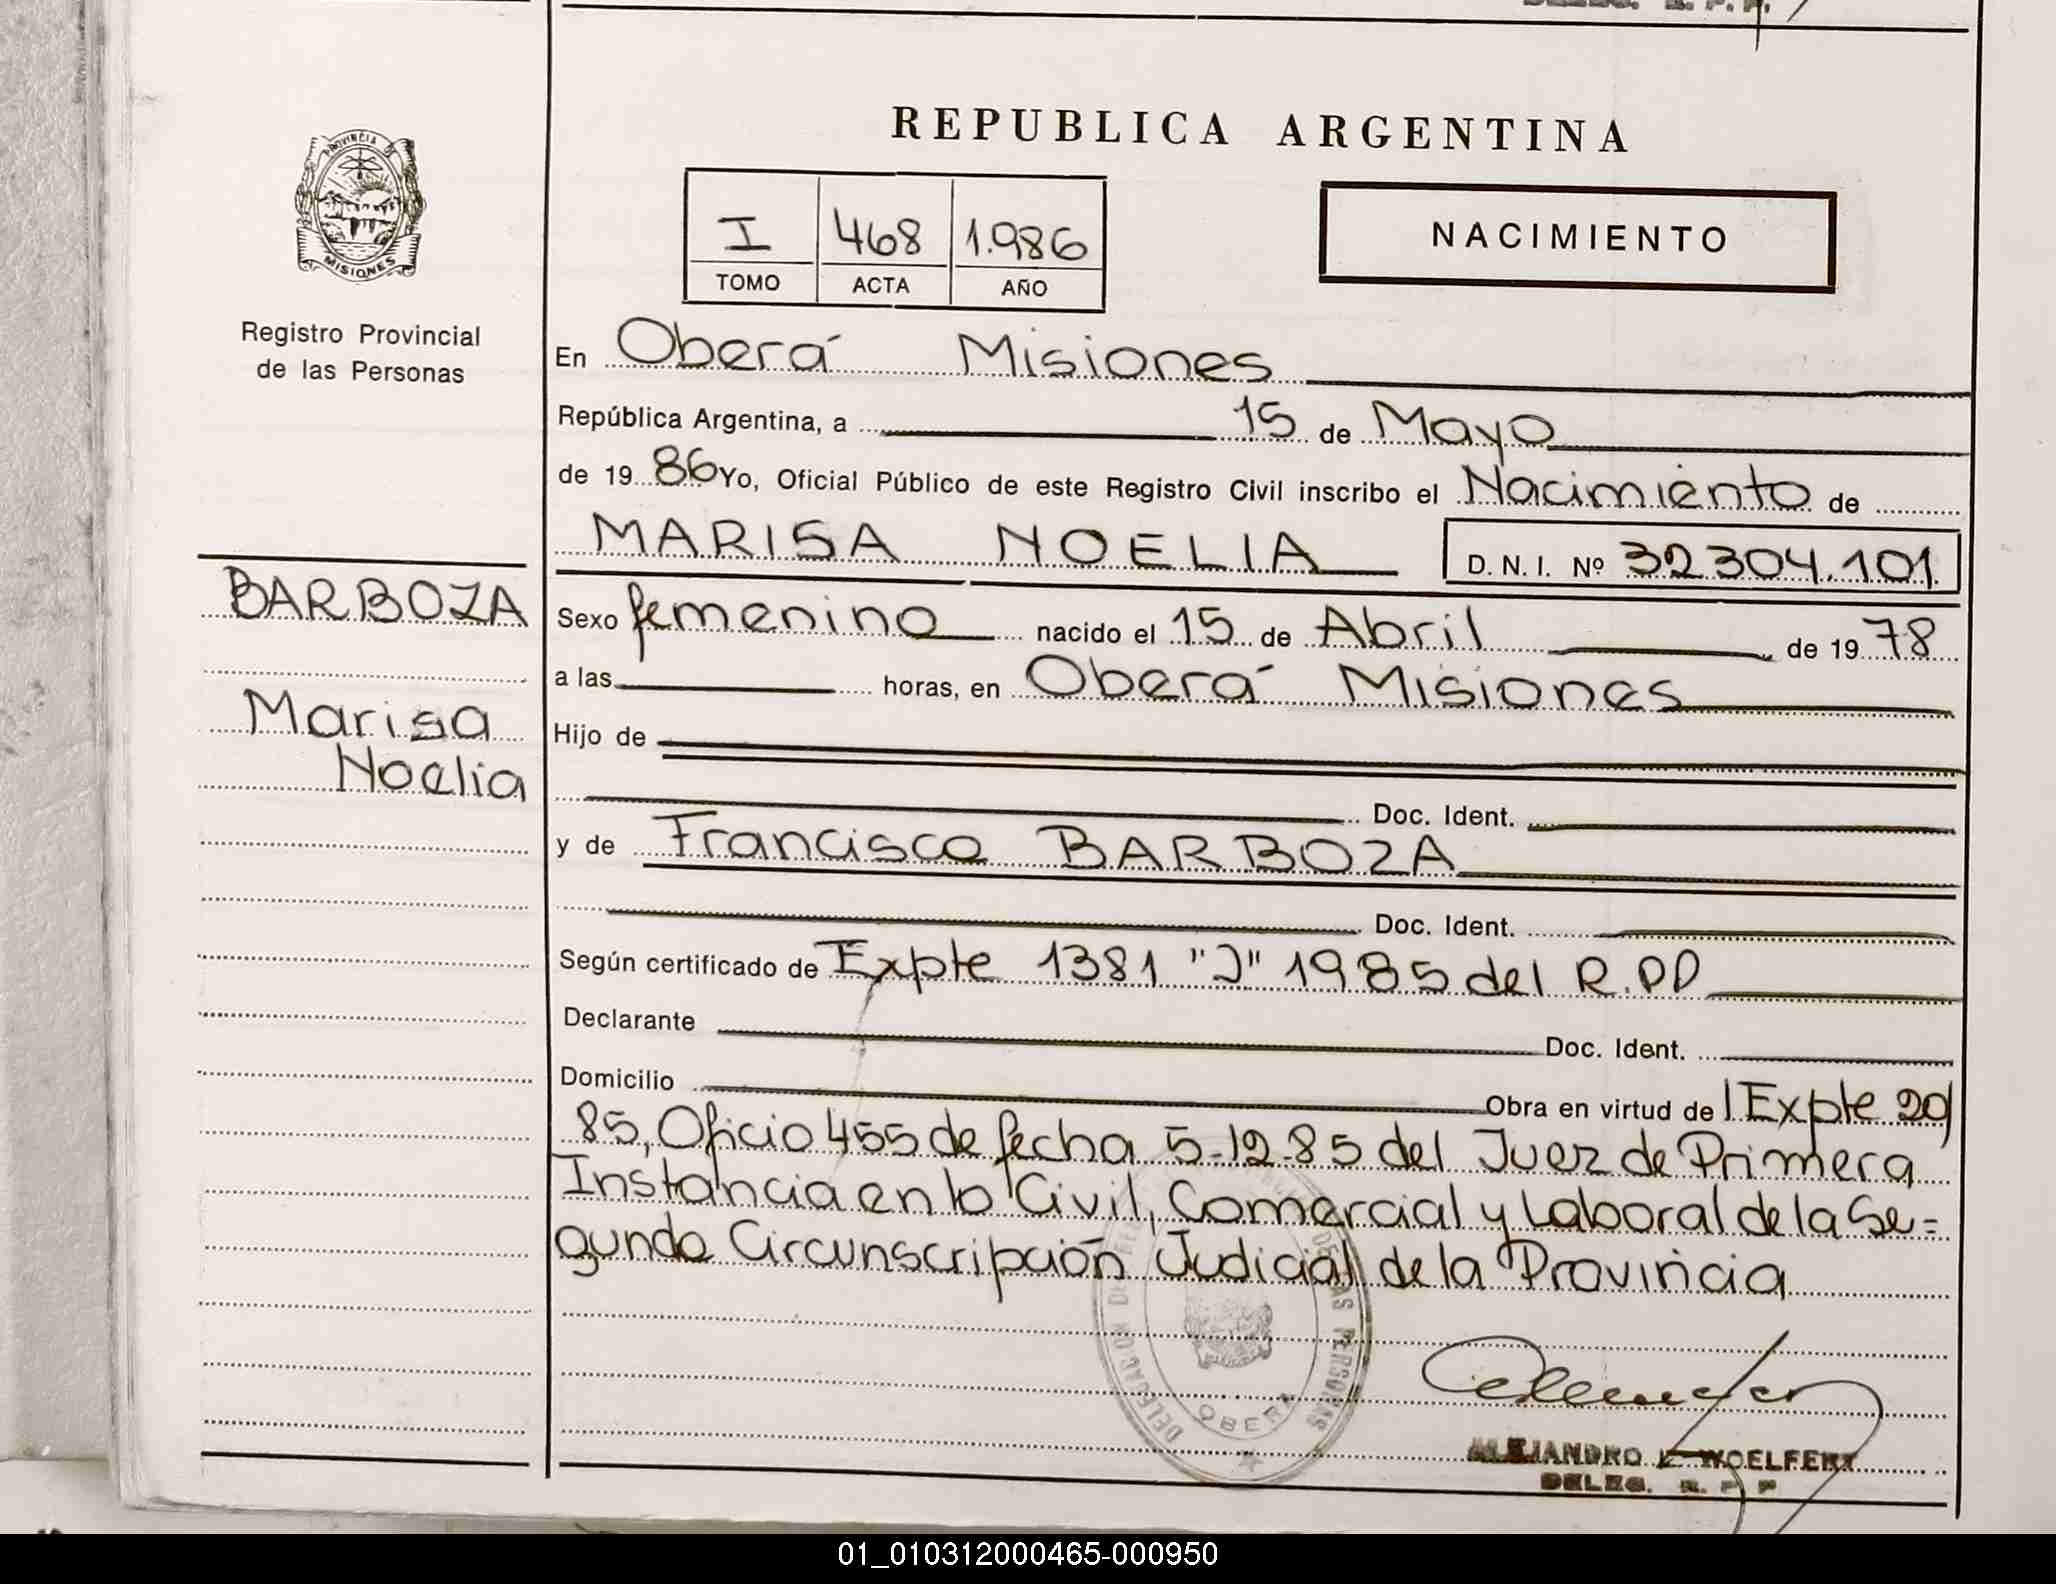 DELEG. R. P. P.
REPUBLICA ARGENTINA
PROVINCIA DE
MISIONES
I 468 1.986
TOMO ACTA AÑO
NACIMIENTO
Registro Provincial
de las Personas
En Oberá Misiones
República Argentina, a 15 de Mayo
de 19 86 Yo, Oficial Público de este Registro Civil inscribo el Nacimiento de
MARISA NOELIA D. N. I. Nº 32304.101
BARBOZA
Sexo femenino nacido el 15 de Abril de 19 78
a las horas, en Oberá Misiones
Marisa
Noelia
Hijo de
Doc. Ident.
y de Francisco BARBOZA
Doc. Ident.
Según certificado de Expte 1381 "J" 1985 del R.PP
Declarante Doc. Ident.
Domicilio Obra en virtud de Expte 20/
85, Oficio 455 de fecha 5-12-85 del Juez de Primera
Instancia en lo Civil, Comercial y Laboral de la Se=
gunda Circunscripción Judicial de la Provincia
DE LAS PERSONAS
OBERA
ALEJANDRO E. WOELFERT
DELEG. R. P. P.
01_010312000465-000950